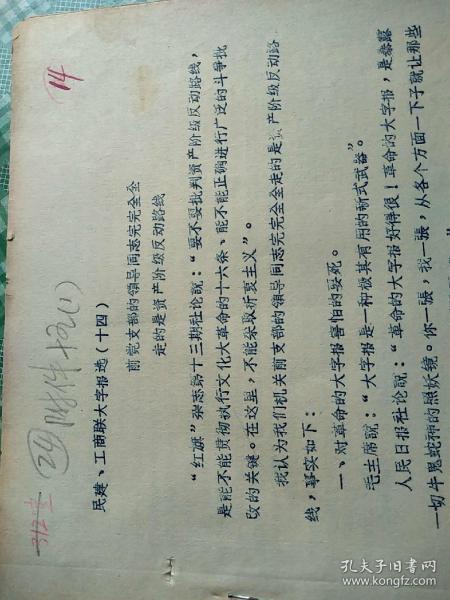 14
民建、工商联大字报选（十四）
前党支部的领导同志完完全全
走的是资产阶级反动路线
“红旗”杂志第十三期社论說：“要不要批判资产阶级反动路线，
是能不能贯彻执行文化大革命的十六条、能不能正确进行广泛的斗争批
改的关键。在这里，不能采取折衷主义”。
我认为我们机关前支部的领导同志完完全全走的是资产阶级反动路
线，事实如下：
一、对革命的大字报害怕的要死。
毛主席說：“大字报是一种极其有用的新式武器”。
人民日报社论說：“革命的大字报好得很！革命的大字报，是暴露
一切牛鬼蛇神的照妖镜。你一張，我一張，从各个方面一下子就让那些
孔夫子旧书网
www.kongfz.com